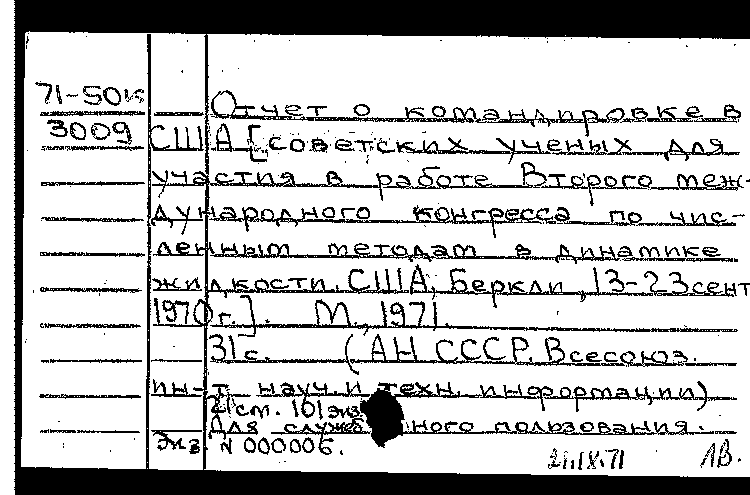 71-50к Отчет о командировке в
3009 США [советских ученых для
участия в работе Второго меж-
дународного конгресса по чис-
ленным методам в динамике
жидкости, США, Беркли, 13-23 сент
1970 г.]. М., 1971.
31 с. (АН СССР. Всесоюз.
ин-т науч. и техн. информации)
21 см. 101 экз.
Для служебного пользования.
Экз. N 000006.
21.IX.71 ЛВ.